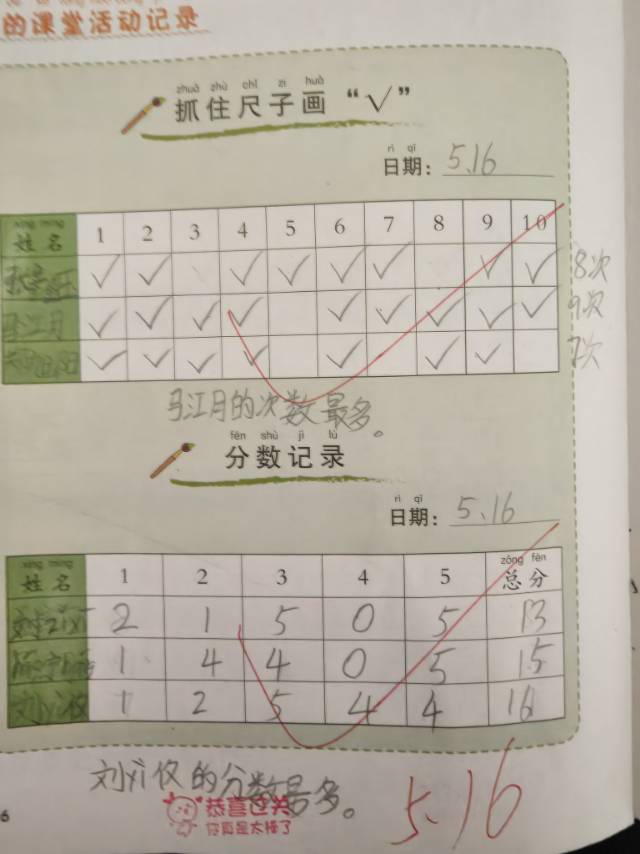 的课堂活动记录
zhuā zhù chǐ zi huà
抓住尺子画“√”
rì qī
日期：5.16
xìng míng
姓名 1 2 3 4 5 6 7 8 9 10
√ √ √ √ √ √ √ √ 8次
马江月 √ √ √ √ √ √ √ √ √ 9次
√ √ √ √ √ √ √ 7次
马江月的次数最多。
fēn shù jì lù
分数记录
rì qī
日期：5.16
xìng míng zǒng fēn
姓名 1 2 3 4 5 总分
2 1 5 0 5 13
1 4 4 0 5 15
刘yi伇 1 2 5 4 4 16
刘yi伇的分数最多。
恭喜过关
你真是太棒了
5.16
6